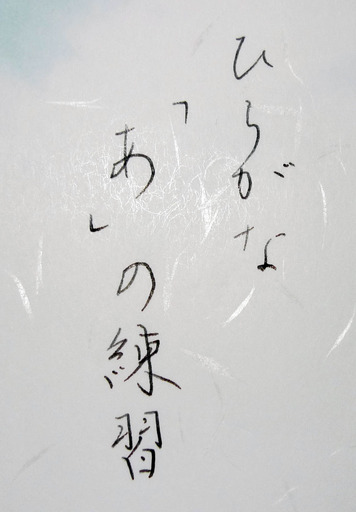 ひらがな
「あ」の練習